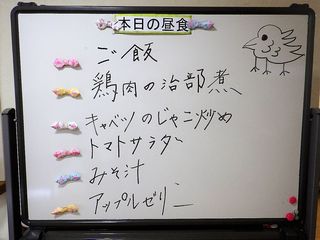 本日の昼食
ご飯
鶏肉の治部煮
キャベツのじゃこ炒め
トマトサラダ
みそ汁
アップルゼリー